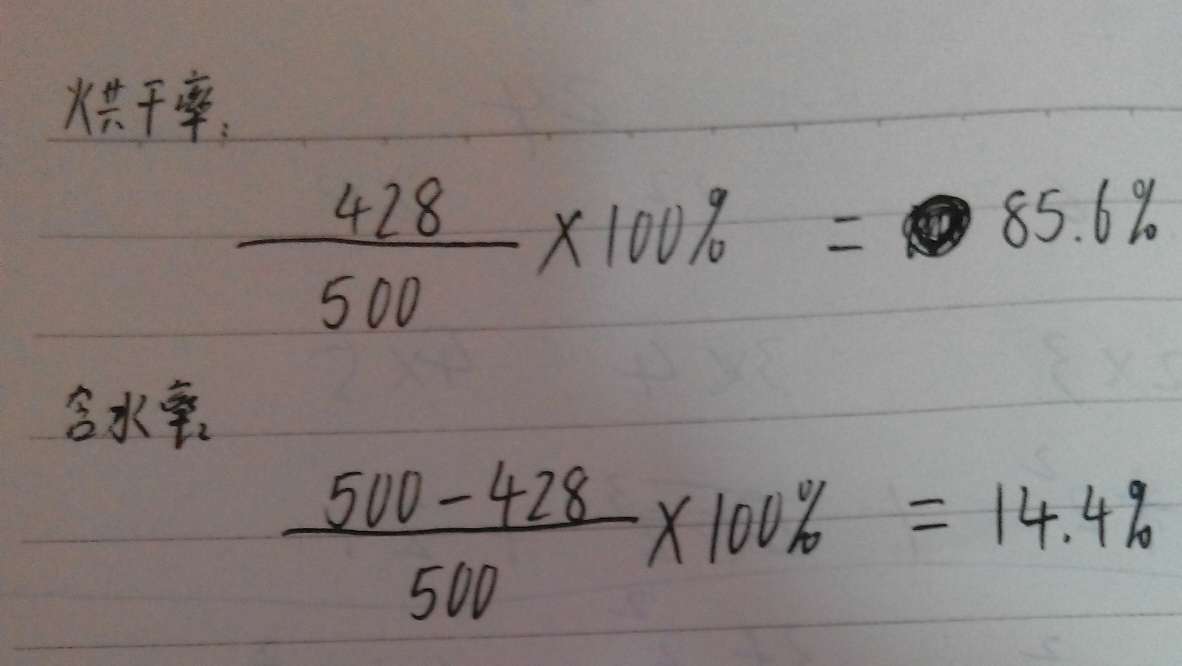 烘干率:
428
500
×100% = 85.6%
含水率:
500-428
500
×100% = 14.4%